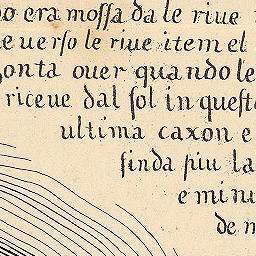 o era mossa da le riue
e uerso le riue item el
onta ouer quando le
riceue dal sol in quest
ultima caxon e
sinda piu la
e minu
de